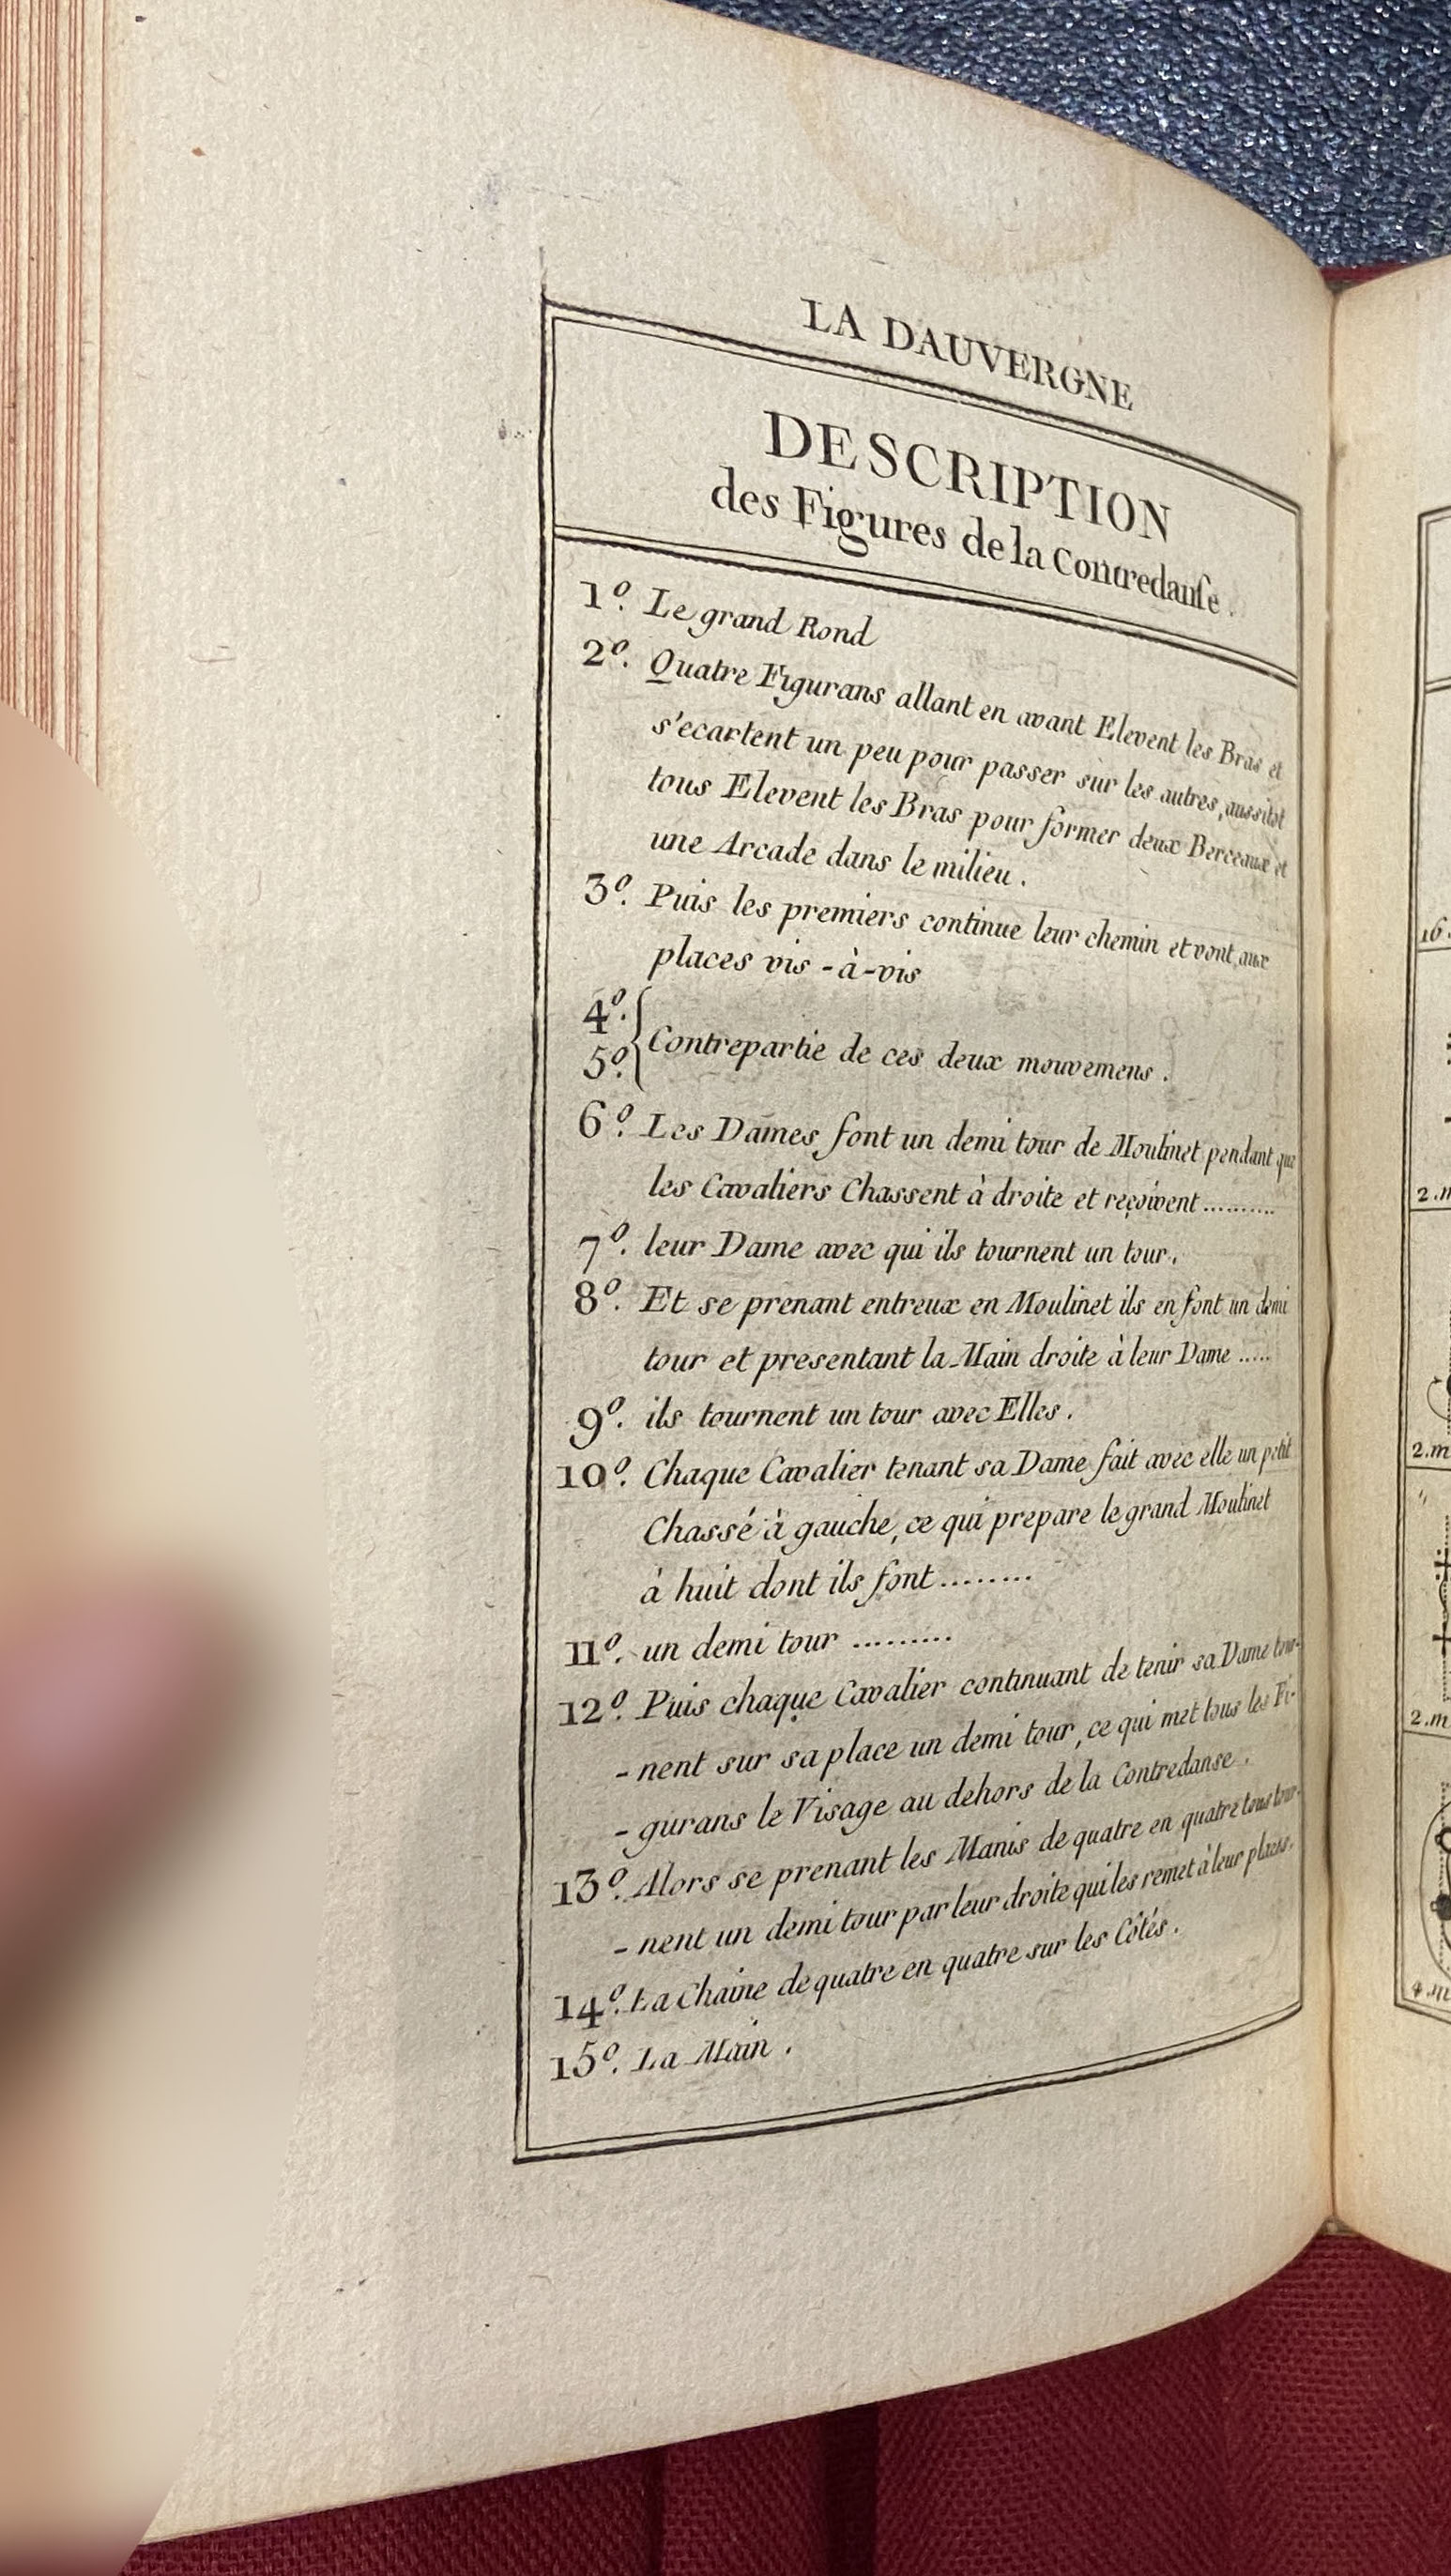 LA DAUVERGNE
DESCRIPTION
des Figures de la Contredanſe.
1º. Le grand Rond
2º. Quatre Figurans allant en avant Elevent les Bras et
s'ecartent un peu pour passer sur les autres, aussitot
tous Elevent les Bras pour former deux Berceaux et
une Arcade dans le milieu.
3º. Puis les premiers continue leur chemin et vont aux
places vis-à-vis
4º.
5º. { Contrepartie de ces deux mouvemens.
6º. Les Dames font un demi tour de Moulinet pendant que
les Cavaliers Chassent à droite et reçoivent..........
7º. leur Dame avec qui ils tournent un tour.
8º. Et se prenant entreux en Moulinet ils en font un demi
tour et presentant la Main droite à leur Dame.....
9º. ils tournent un tour avec Elles.
10º. Chaque Cavalier tenant sa Dame fait avec elle un petit
Chassé à gauche, ce qui prepare le grand Moulinet
à huit dont ils font........
11º. un demi tour.........
12º. Puis chaque Cavalier continuant de tenir sa Dame tour-
-nent sur sa place un demi tour, ce qui met tous les Fi-
-gurans le Visage au dehors de la Contredanse.
13º. Alors se prenant les Manis de quatre en quatre tous tour-
-nent un demi tour par leur droite qui les remet à leur places.
14º. La Chaine de quatre en quatre sur les Côtés.
15º. La Main.
16.
2.m
2.m
2.m
4.m